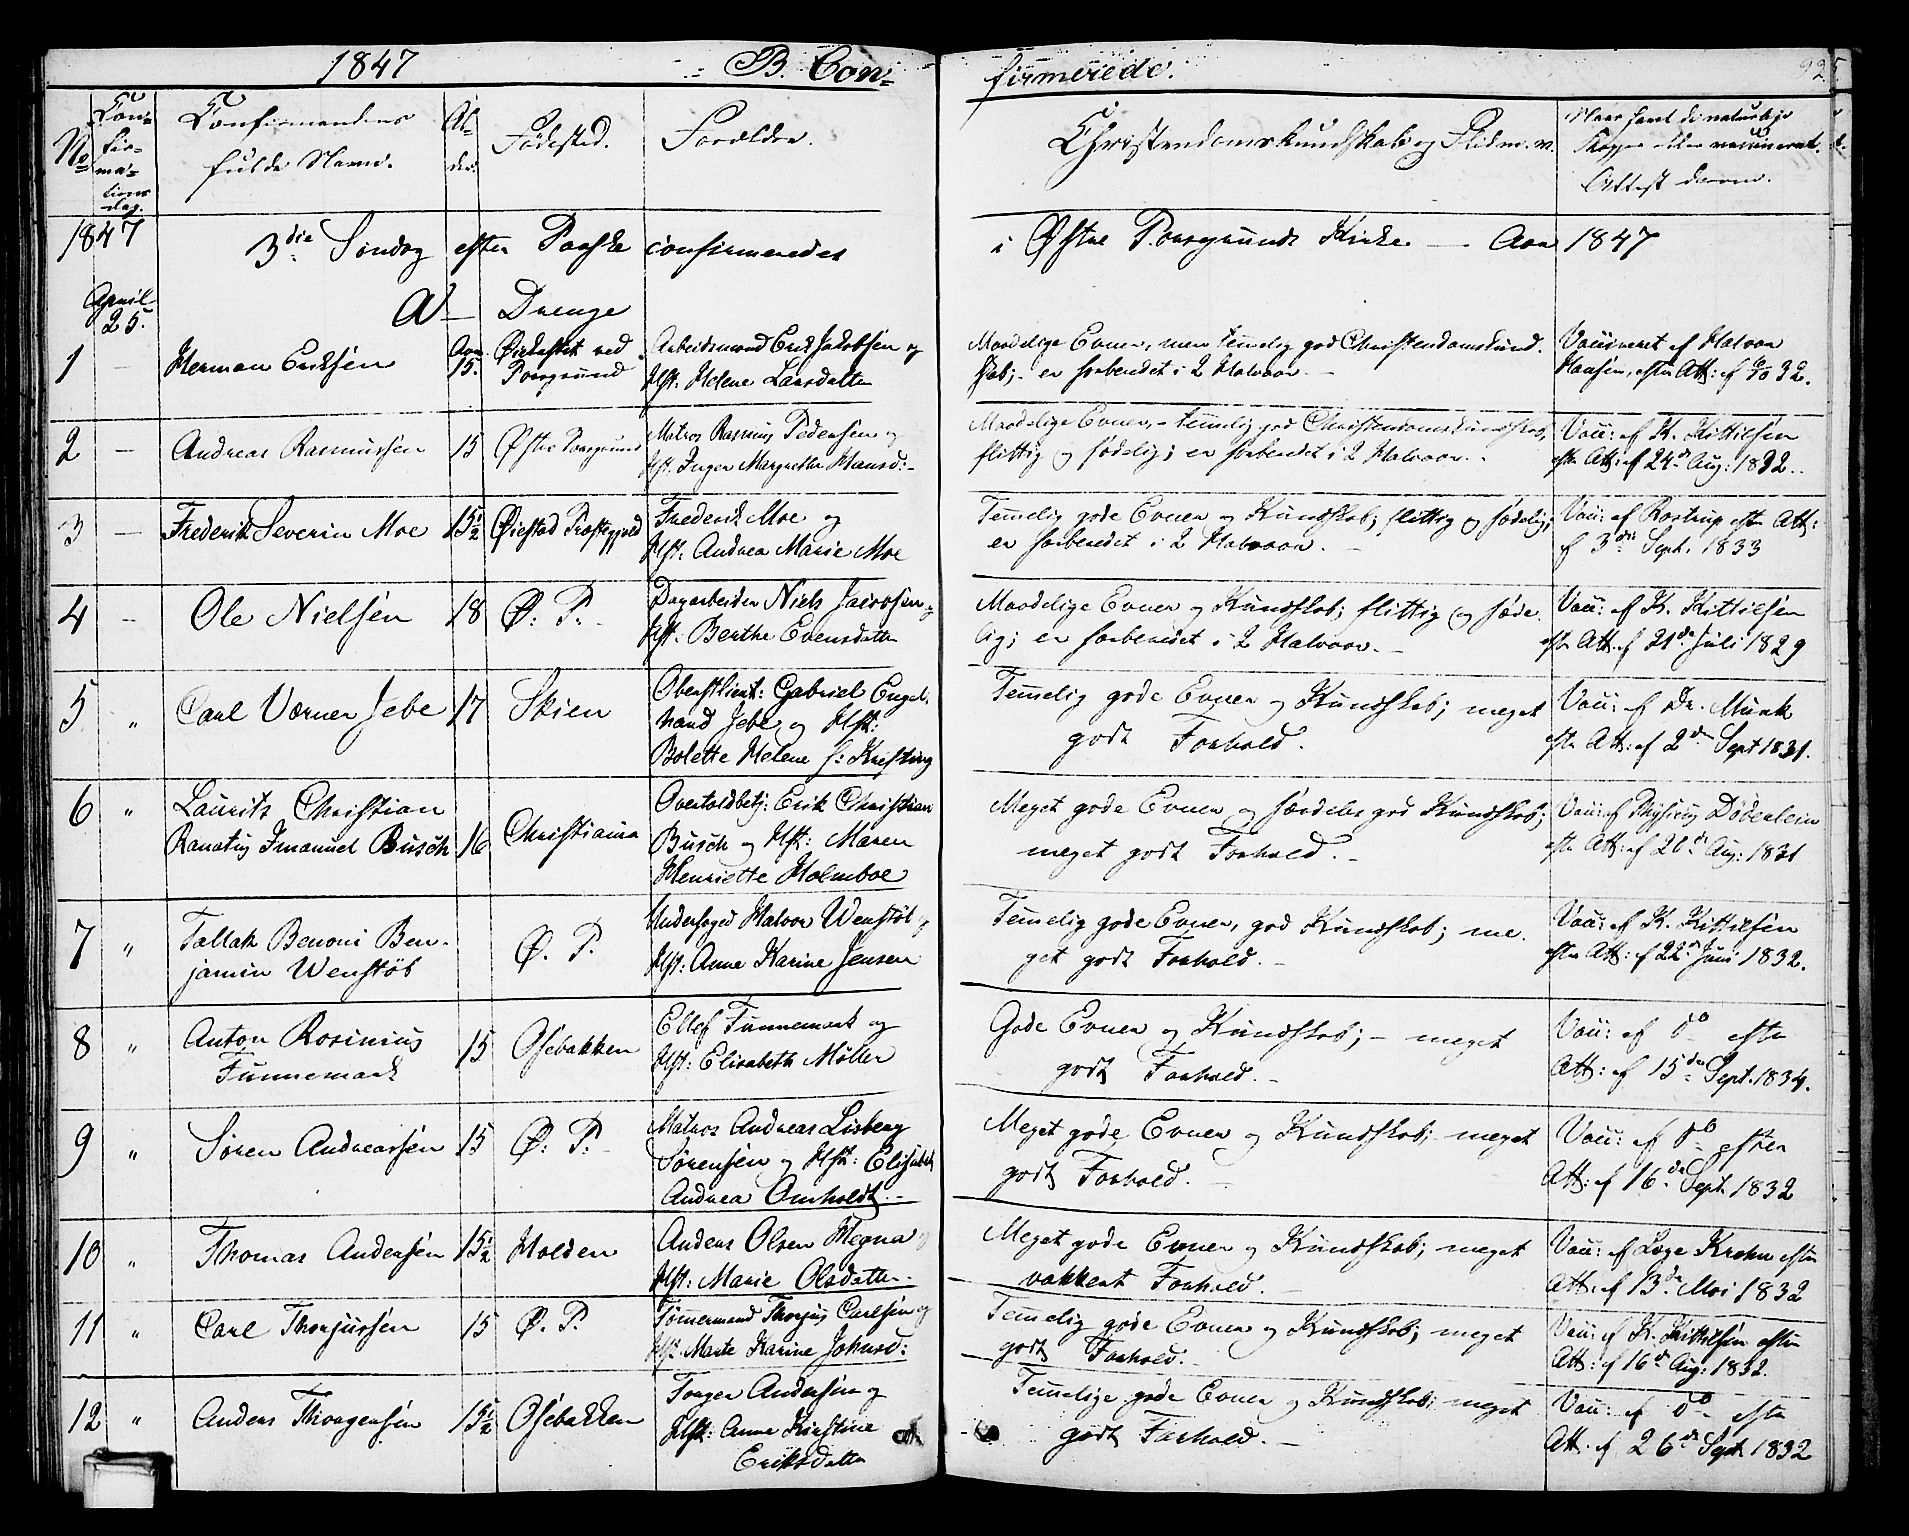 1847 B. Con-
firmerede.
No
Con-
fir-
ma-
tions
dag.
Confirmandens
fulde Navn.
Al-
der.
Fødested.
Forældre.
Christendomskundskab og Flid m. v.
Naar havt de naturlige
Kopper eller vaccineret.
Attest derom.
1847 3die Søndag efter Paaske confirmeredes i Østre Porsgrunds Kirke. — Aar 1847
April
25.
A — Drenge
1 — Herman Eriksen
Aar
15.
Øiekastet ved
Porsgrund
Arbeidsmand Erik Jakobsen og
Hst: Helene Larsdatter
Maadelige Evner, men temelig god Christendomskund.
skab; - er forberedet i 2 Halvaar. —
Vaccineret af Halvor
Hansen, efter Att: af 6/10 32.
2 — Andreas Rasmussen 15 Østre Porsgrund
Matros Rasmus Pedersen og
Hst. Inger Margrethe Hansd: -
Maadelige Evner, - temelig god Christendomskundskab,
flittig og sædelig; er forberedet i 2 Halvaar. -
Vacc: af K. Kittilsen
efter Att: af 24de Aug: 1832.
3 — Frederik Severin Moe 15½ Øiestad Præstegjeld
Frederik Moe og
Hst: Andrea Marie Moe
Temelig gode Evner og Kundskab; flittig og sædelig;
er forberedet i 2 Halvaar. —
Vacc: af Rostrup efter Att:
af 3die Sept. 1833
4 — Ole Nielsen 18 Ø: P: -
Dagarbeider Niels Jacobsen og
Hst: Berthe Evensdatter
Maadelige Evner og Kundskab; flittig og sæde.
lig; er forberedet i 2 Halvaar. —
Vacc: af K. Kittilsen
efter Att. af 21de Juli 1829
5 " Carl Værner Jebe 17 Skien
Oberstlieut: Gabriel Engel-
hard Jebe og Hst:
Bolette Helene f: Kresting
Temelig gode Evner og Kundskab; meget
godt Forhold.
Vacc: af Dr. Munk
efter Att: af 2de Sept 1831.
6 " Laurits Christian
Renatus Imanuel Busch 16 Christiania
Overtoldbetj: Erik Christian
Busch og Hst: Maren
Henriette Holmboe
Meget gode Evner og særdeles god Kundskab;
meget godt Forhold. -
Vacc: af Physicus Døderlein
efter Att: af 26de Aug: 1831
7 " Tallak Benoni Ben-
jamin Wenstøb
Ø. P.
Underfoged Halvor Wenstøb og
Hst: Anne Karine Jensen
Temelig gode Evner, god Kundskab; me-
get godt Forhold. -
Vacc: af K. Kittilsen
efter Att: af 22de Juni 1832.
8 " Anton Rosinius
Funnemark
15 Osebakken
Ellef Funnemark og
Hst: Elisabeth Møller
Gode Evner og Kundskab; - meget
godt Forhold. -
Vacc: af do efter
Att: af 15de Sept. 1834.
9 " Søren Andreassen 15 Ø: P: -
Matros Andreas Lisberg
Sørensen og Hst: Elisabet
Andrea Omholdt. -
Meget gode Evner og Kundskab; meget
godt Forhold. —
Vacc: af do efter
Att: af 16de Sept. 1832
10 " Thomas Andersen 15½ Holden
Anders Olsen Hegna og
Hst: Marie Olsdatter.
Meget gode Evner og Kundskab; meget
vakkert Forhold. —
Vacc: af Læge Krohn efter
Att: af 13de Mai 1832
11 " Carl Thorjussen 15 Ø. P.
Tømmermand Thorjus Carlsen og
Hst. Marte Karine Johnsd:
Temelig gode Evner og Kundskab; meget
godt Forhold. -
Vacc: af K. Kittilsen efter
Att: af 16de Aug: 1832.
12 " Anders Thorgersen 15½ Osebakken
Torger Andersen og
Hst: Anne Kirstine
Eriksdatter
Temelige gode Evner og Kundskab; meget
godt Forhold. —
Vacc: af do efter
Att: af 26de Sept. 1832